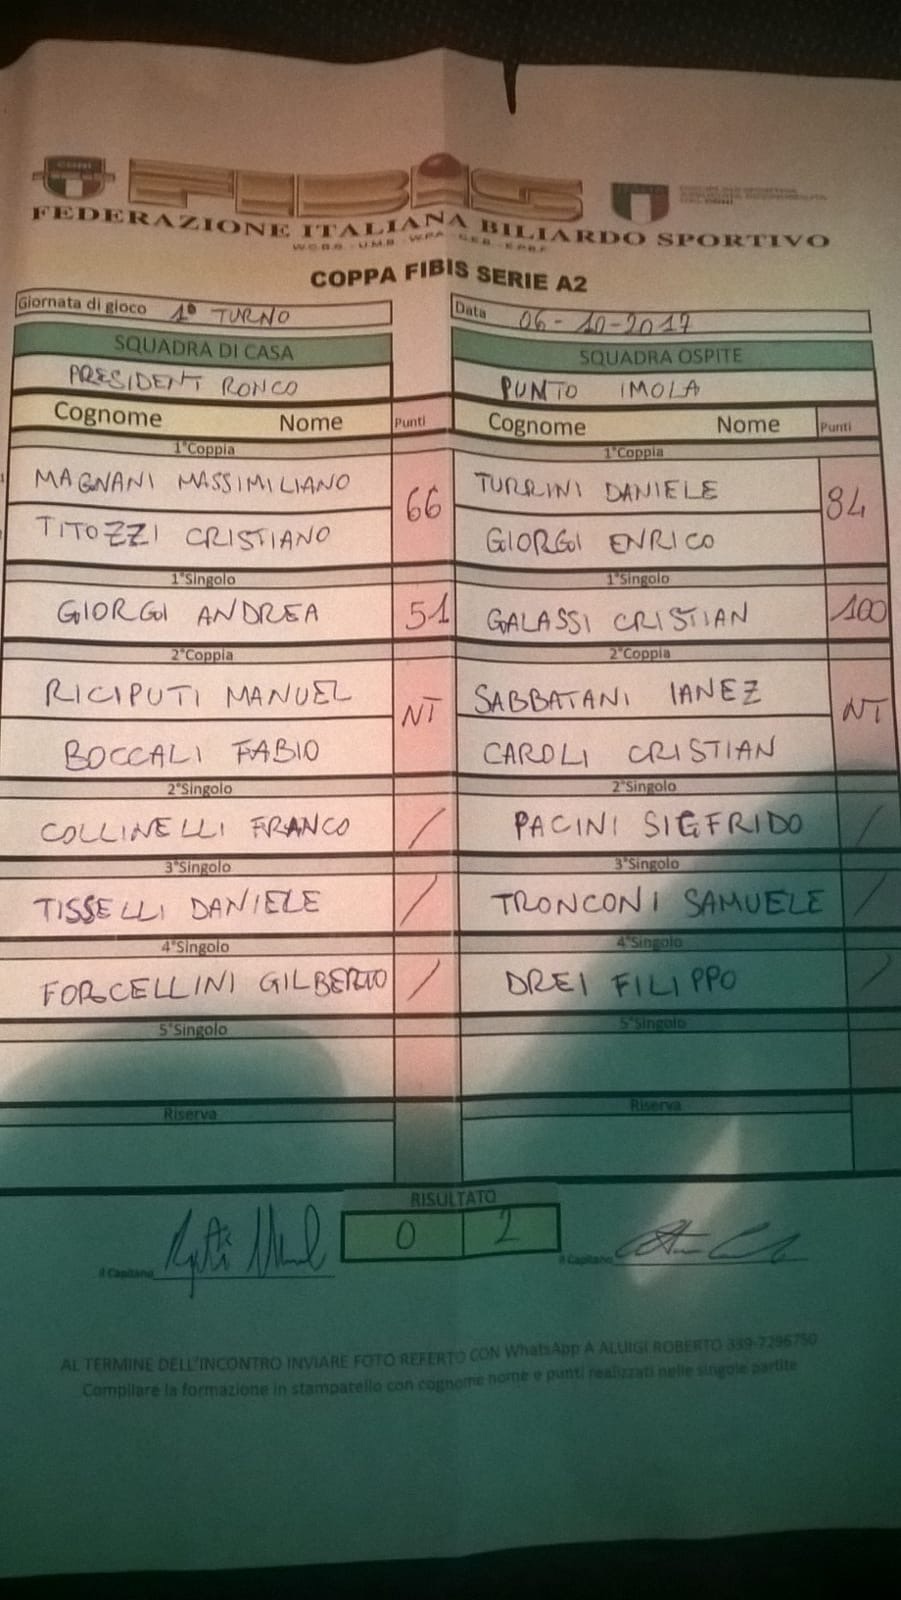 FIBIS
FEDERAZIONE ITALIANA BILIARDO SPORTIVO
COPPA FIBIS SERIE A2
Giornata di gioco 1° TURNO Data 06-10-2017
SQUADRA DI CASA SQUADRA OSPITE
PRESIDENT RONCO PUNTO IMOLA
Cognome Nome Punti Cognome Nome Punti
1°Coppia 1°Coppia
MAGNANI MASSIMILIANO 66 TURRINI DANIELE 84
TITOZZI CRISTIANO GIORGI ENRICO
1°Singolo 1°Singolo
GIORGI ANDREA 51 GALASSI CRISTIAN 100
2°Coppia 2°Coppia
RICIPUTI MANUEL NT SABBATANI IANEZ NT
BOCCALI FABIO CAROLI CRISTIAN
2°Singolo 2°Singolo
COLLINELLI FRANCO / PACINI SIGFRIDO /
3°Singolo 3°Singolo
TISSELLI DANIELE / TRONCONI SAMUELE /
4°Singolo 4°Singolo
FORCELLINI GILBERTO / DREI FILIPPO /
5°Singolo 5°Singolo
Riserva Riserva
RISULTATO
0 2
Il Capitano Il Capitano
AL TERMINE DELL'INCONTRO INVIARE FOTO REFERTO CON WhatsApp A ALUIGI ROBERTO 339-7296750
Compilare la formazione in stampatello con cognome nome e punti realizzati nelle singole partite